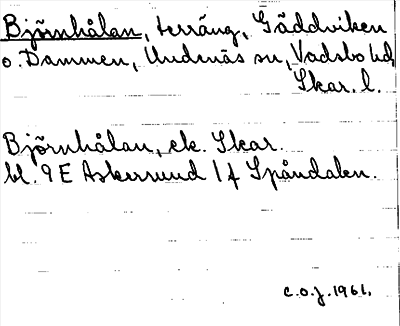 Björnhålan, terräng, Gäddviken
o. Dammen, Undenäs sn, Vadsbo hd,
Skar. l.
Björnhålan, ek. Skar.
bl. 9 E Askersund 1 f Spåndalen.
c.o.j. 1961.